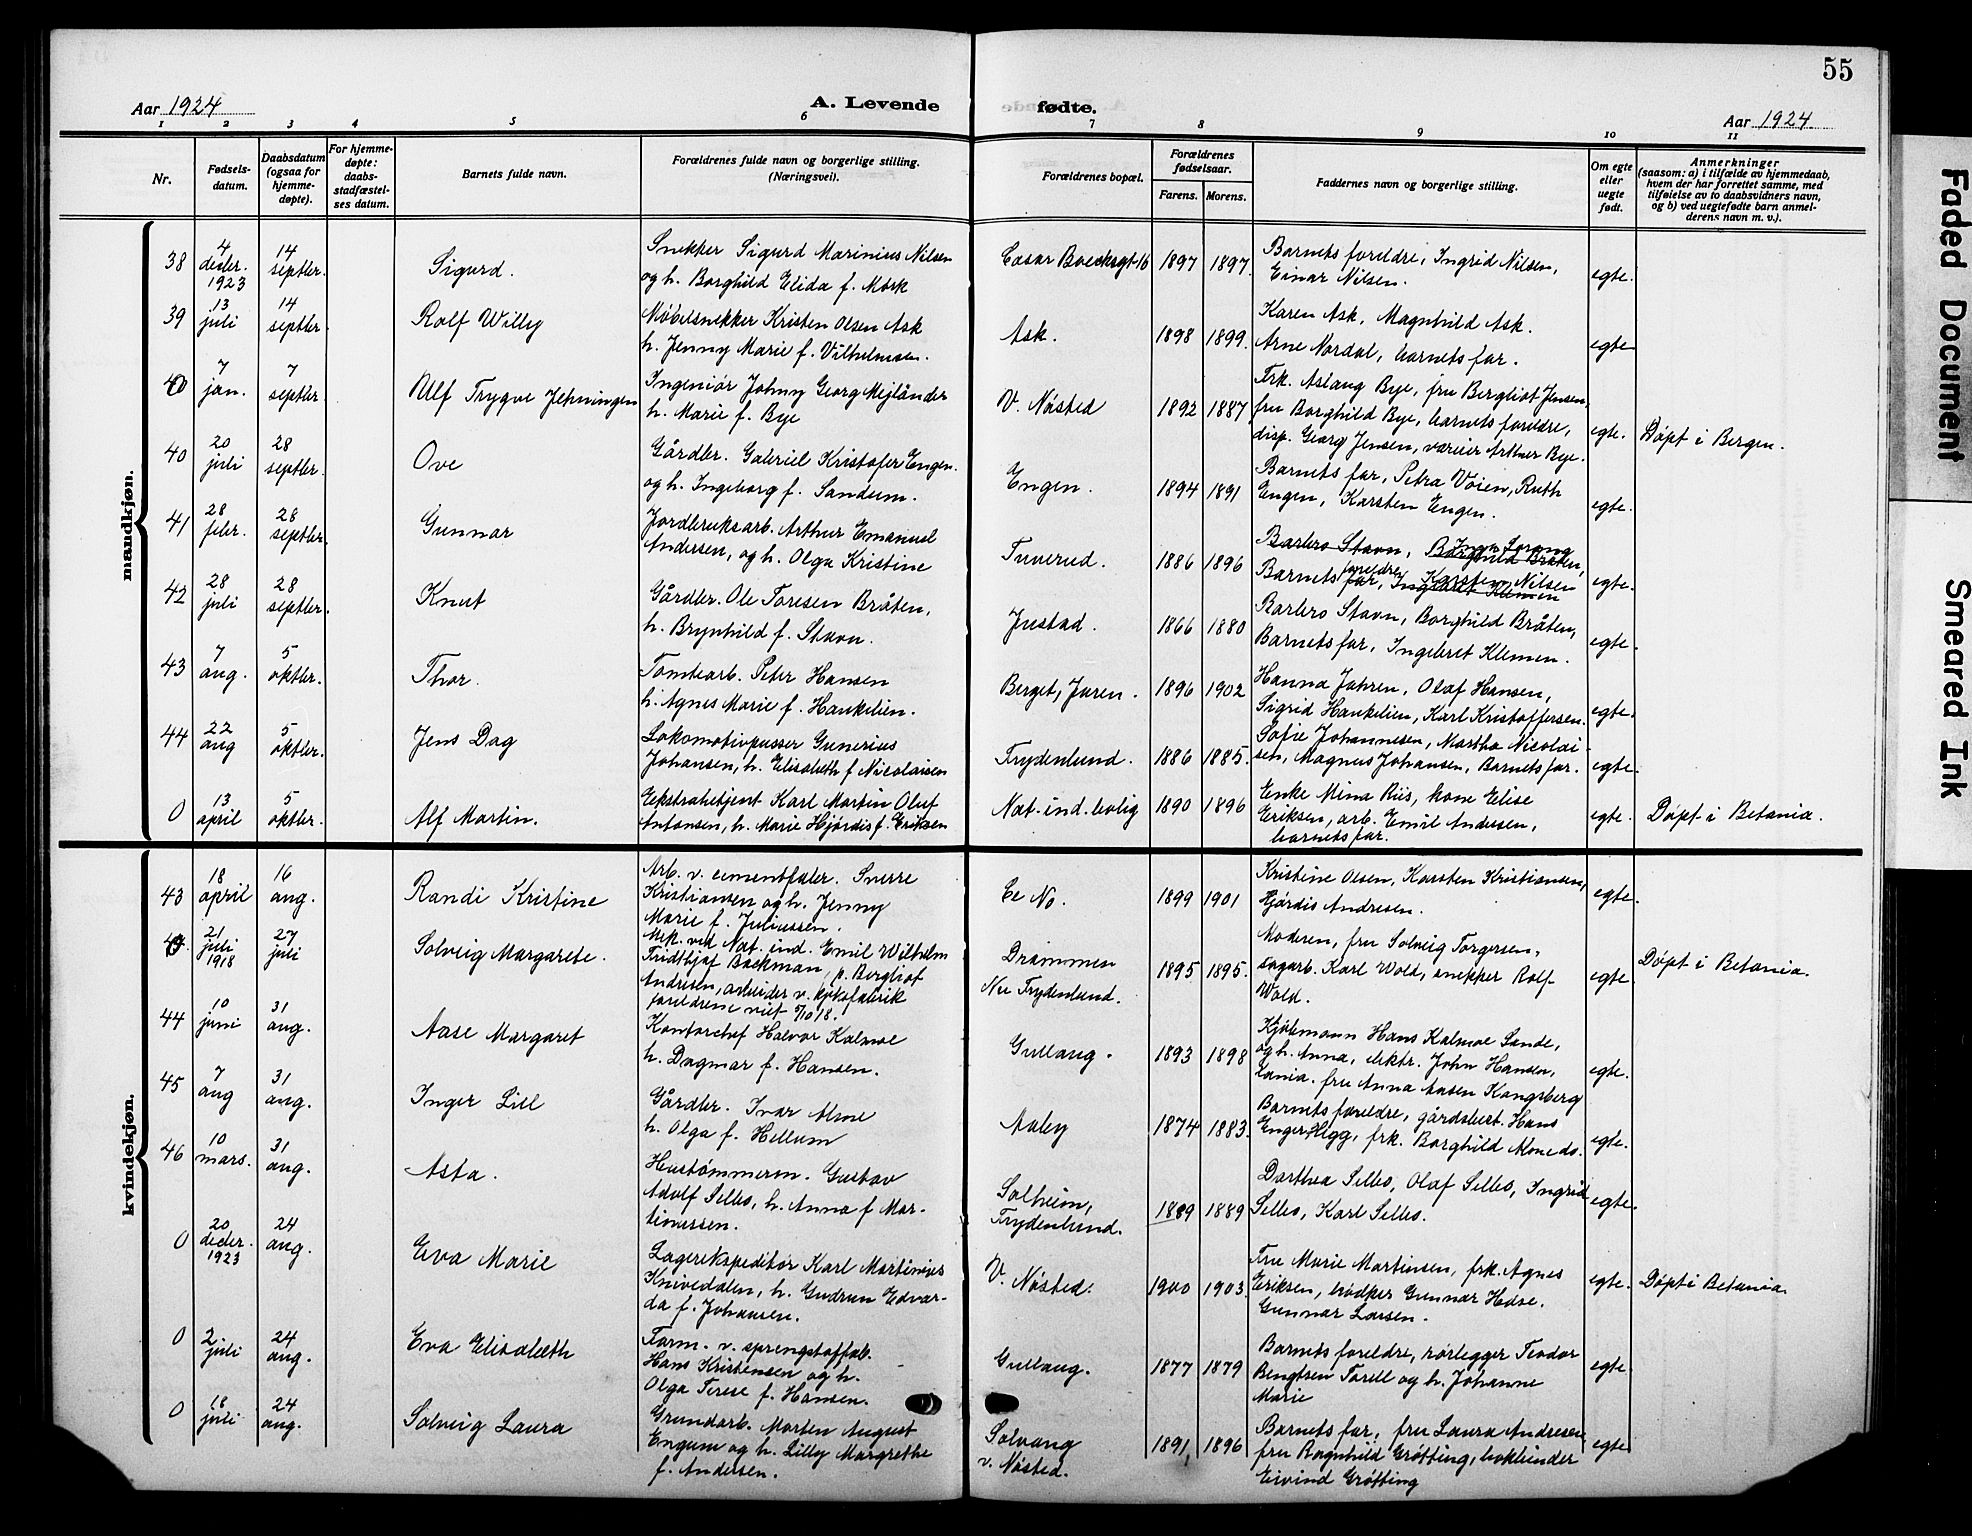 55
Aar 1924
A. Levende fødte.
Aar 1924
1 2 3 4 5 6 7 8 9 10 11
Nr.
Fødsels-
datum.
Daabsdatum
(ogsaa for
hjemme-
døpte).
For hjemme-
døpte:
daabs-
stadfæstel-
ses datum.
Barnets fulde navn.
Forældrenes fulde navn og borgerlige stilling.
(Næringsvei).
Forældrenes bopæl.
Forældrenes
fødselsaar.
Farens. Morens.
Faddernes navn og borgerlige stilling.
Om egte
eller
uegte
født.
Anmerkninger
(saasom: a) i tilfælde av hjemmedaab,
hvem der har forrettet samme, med
tilføielse av to daabsvidners navn,
og b) ved uegtefødte barn anmel-
derens navn m. v.).
mandkjøn.
38
4
desbr.
1923
14
septbr.
Sigurd.
Snekker Sigurd Marinius Nilsen
og h. Borghild Elida f. Mørk
Cæsar Boecksgt 16
1897
1897.
Barnets foreldre, Ingrid Nilsen,
Einar Nilsen.
egte.
39
13
juli
14
septbr.
Rolf Willy
Møbelsnekker Kristen Olsen Ask
h. Jenny Marie f. Vilhelmsen.
Ask.
1898
1899.
Karen Ask, Magnhild Ask.
Arne Nordal, barnets far.
egte
0
7
jan.
7
septbr.
Ulf Trygve
Ingeniør Johny Georg Mejlånder
h. Marie f. Bye
V. Nøsted
1892
1887
Frk. Aslaug Bye, fru Bergliot Jensen,
fru Borghild Bye, barnets foreldre,
disp. Georg Jensen, Arthur Bye.
egte.
Døpt i Bergen.
40
20
juli
28
septbr.
Ove
Gårdbr. Gabriel Kristofer Engen.
og h. Ingeborg f. Sandum.
Engen.
1894
1891
Barnets far, Petra Voien, Ruth
Engen, Karsten Engen.
egte.
41
28
febr.
28
septbr.
Gunnar
Jordbruksarb. Arthur Emanuel
Andersen, og h. Olga Kristine
Tuverud.
1886
1896
Barbro Stavn, Borghild Bråten,
Barnets foreldre, Karsten Nilsen
egte.
42
28
juli
28
septbr.
Knut
Gårdbr. Ole Toresen Bråten,
h. Brynhild f. Stavn.
Justad.
1866
1880
Barbro Stavn, Borghild Bråten,
Barnets far, Ingebret Klemen.
egte.
43
7
aug.
5
oktbr.
Thor.
Tomtearb. Peter Hansen
h. Agnes Marie f. Hankelien.
Berget, Jaren.
1896
1902
Hanna Jahren, Olaf Hansen,
Sigrid Hankelien, Karl Kristoffersen.
egte.
44
22
aug
5
oktbr.
Jens Dag
Lokomotivpusser Gunerius
Johansen, h. Elisabeth f Nicolaisen
Frydenlund.
1886
1885.
Sofie Johannesen, Martha Nicolai-
sen, Magnus Johansen, Barnets far.
egte.
0
13
april
5
oktbr.
Alf Martin.
Ekstrabetjent Karl Martin Oluf
Antonsen, h. Marie Hjørdis f. Eriksen
Nat. ind. bolig
1890
1896
Enke Mina Riis, kone Elise
Eriksen, arb. Emil Andersen,
barnets far.
egte.
Døpt i Betania.
kvindekjøn.
43
18
april
16
aug.
Randi Kristine
Arb. v. cementfabr. Sverre
Kristiansen og h. Jenny
Marie f. Juliussen.
Ee No.
1899
1901
Kristine Olsen, Karsten Kristiansen,
Hjørdis Andresen.
egte.
0
21
juli
1918
27
juli
Solveig Margarete.
Mek. ved Nat. ind. Emil Wilhelm
Fridthjof Backman, p. Bergliot
Andresen, arbeider v. kjeksfabrik
foreldrene viet 5/10 18.
Drammen
Nu Frydenlund.
1895
1895.
Moderen, fru Solveig Torgersen,
sagarb. Karl Wold, snekker Rolf
Wold.
egte.
Døpt i Betania.
44
10
juni
31
aug.
Aase Margaret
Kontorchef Halvor Kalmoe
h. Dagmar f. Hansen.
Gullaug.
1893
1898
Kjøbmann Hans Kalmoe Sande,
og h. Anna, elektr. John Hansen,
fru Anna Aasen Kongsberg
egte.
45
7
aug
31
aug.
Inger Lill
Gårdbr. Ivar Alme
h. Olga f. Hellum
Aaby
1874
1883.
Barnets foreldre, gårdsbest. Hans
Enger, Hegg, frk. Borghild Alme do.
egte.
46
10
mars.
31
aug.
Asta.
Hustømmerm. Gustav
Adolf Sellæs, h. Anna f Mar-
tinussen.
Solheim,
Frydenlund.
1889
1889
Dorthea Sellæs, Olaf Sellæs, Ingrid
Sellæs, Karl Sellæs.
egte.
0
20
decbr.
1923
24
aug.
Eva Marie
Lagerekspeditør Karl Martinius
Knivedalen, h. Gudrun Edvar-
da f. Johansen.
V. Nøsted.
1900
1903.
Fru Marie Martinsen, frk. Agnes
Eriksen, bødker Gunnar Hedse.
Gunnar Larsen.
egte.
Døpt i Betania.
0
2
juli
24
aug.
Eva Elisabeth
Form. v. sprengstoffab.
Hans Kristensen og h.
Olga Terese f. Hansen.
Gullaug.
1877
1879
Barnets foreldre, rørlegger Teodor
Bengtsen Torell og h. Johanne
Marie
egte.
0
18
juli
24
aug.
Solveig Laura
Grundarb. Morten August
Engum og h. Lilly Margrethe
f. Andersen.
Solvang
v. Nøsted.
1891
1896
Barnets far, fru Laura Andresen
fru Ragnhild Grøtting, bokbinder
Eivind Grøtting
egte
Faded Document
Smeared Ink